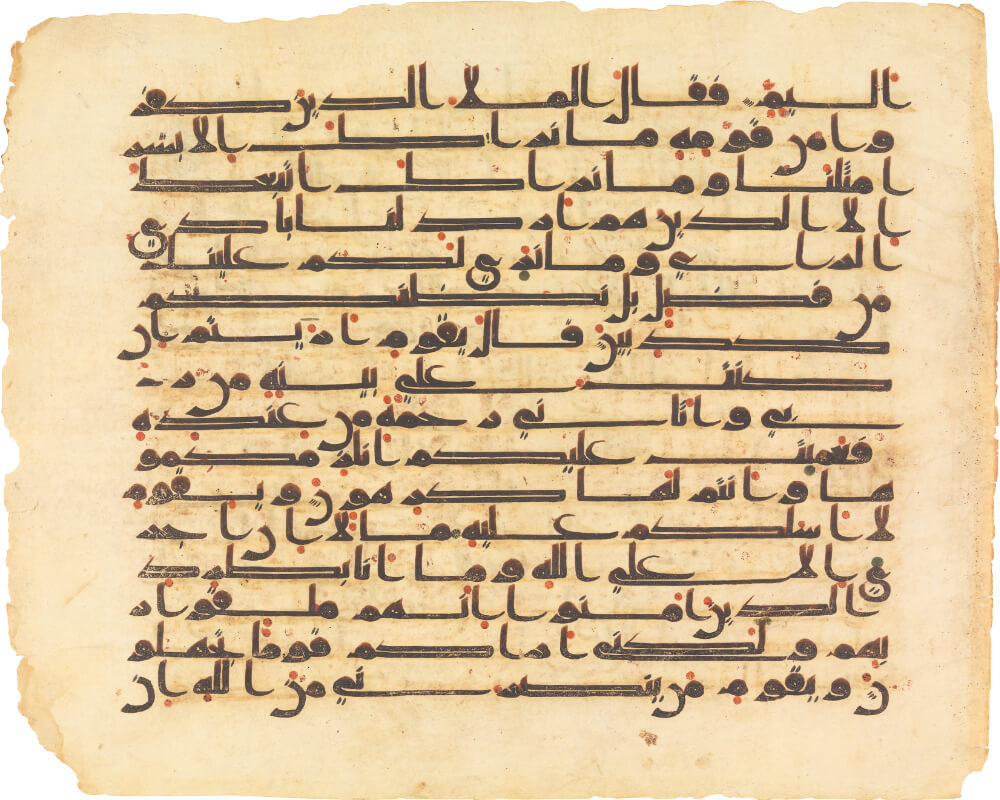 اليم فقال الملا الذين كفر
وا من قومه ما نريك الا بشر
ا مثلنا وما نريك اتبعك
الا الذين هم اراذلنا بادى
الراى وما نرى لكم علينا
من فضل بل نظنكم
كذبين قال يقوم اريتم ان
كنت على بينة من ر
بى واتانى رحمة من عنده
فعميت عليكم انلزمكمو
ها وانتم لها كرهون ويقوم
لا اسلكم عليه مالا ان اجر
ى الا على الله وما انا بطارد
الذين امنوا انهم ملقوا ر
بهم ولكنى اريكم قوما تجهلو
ن ويقوم من ينصرنى من الله ان